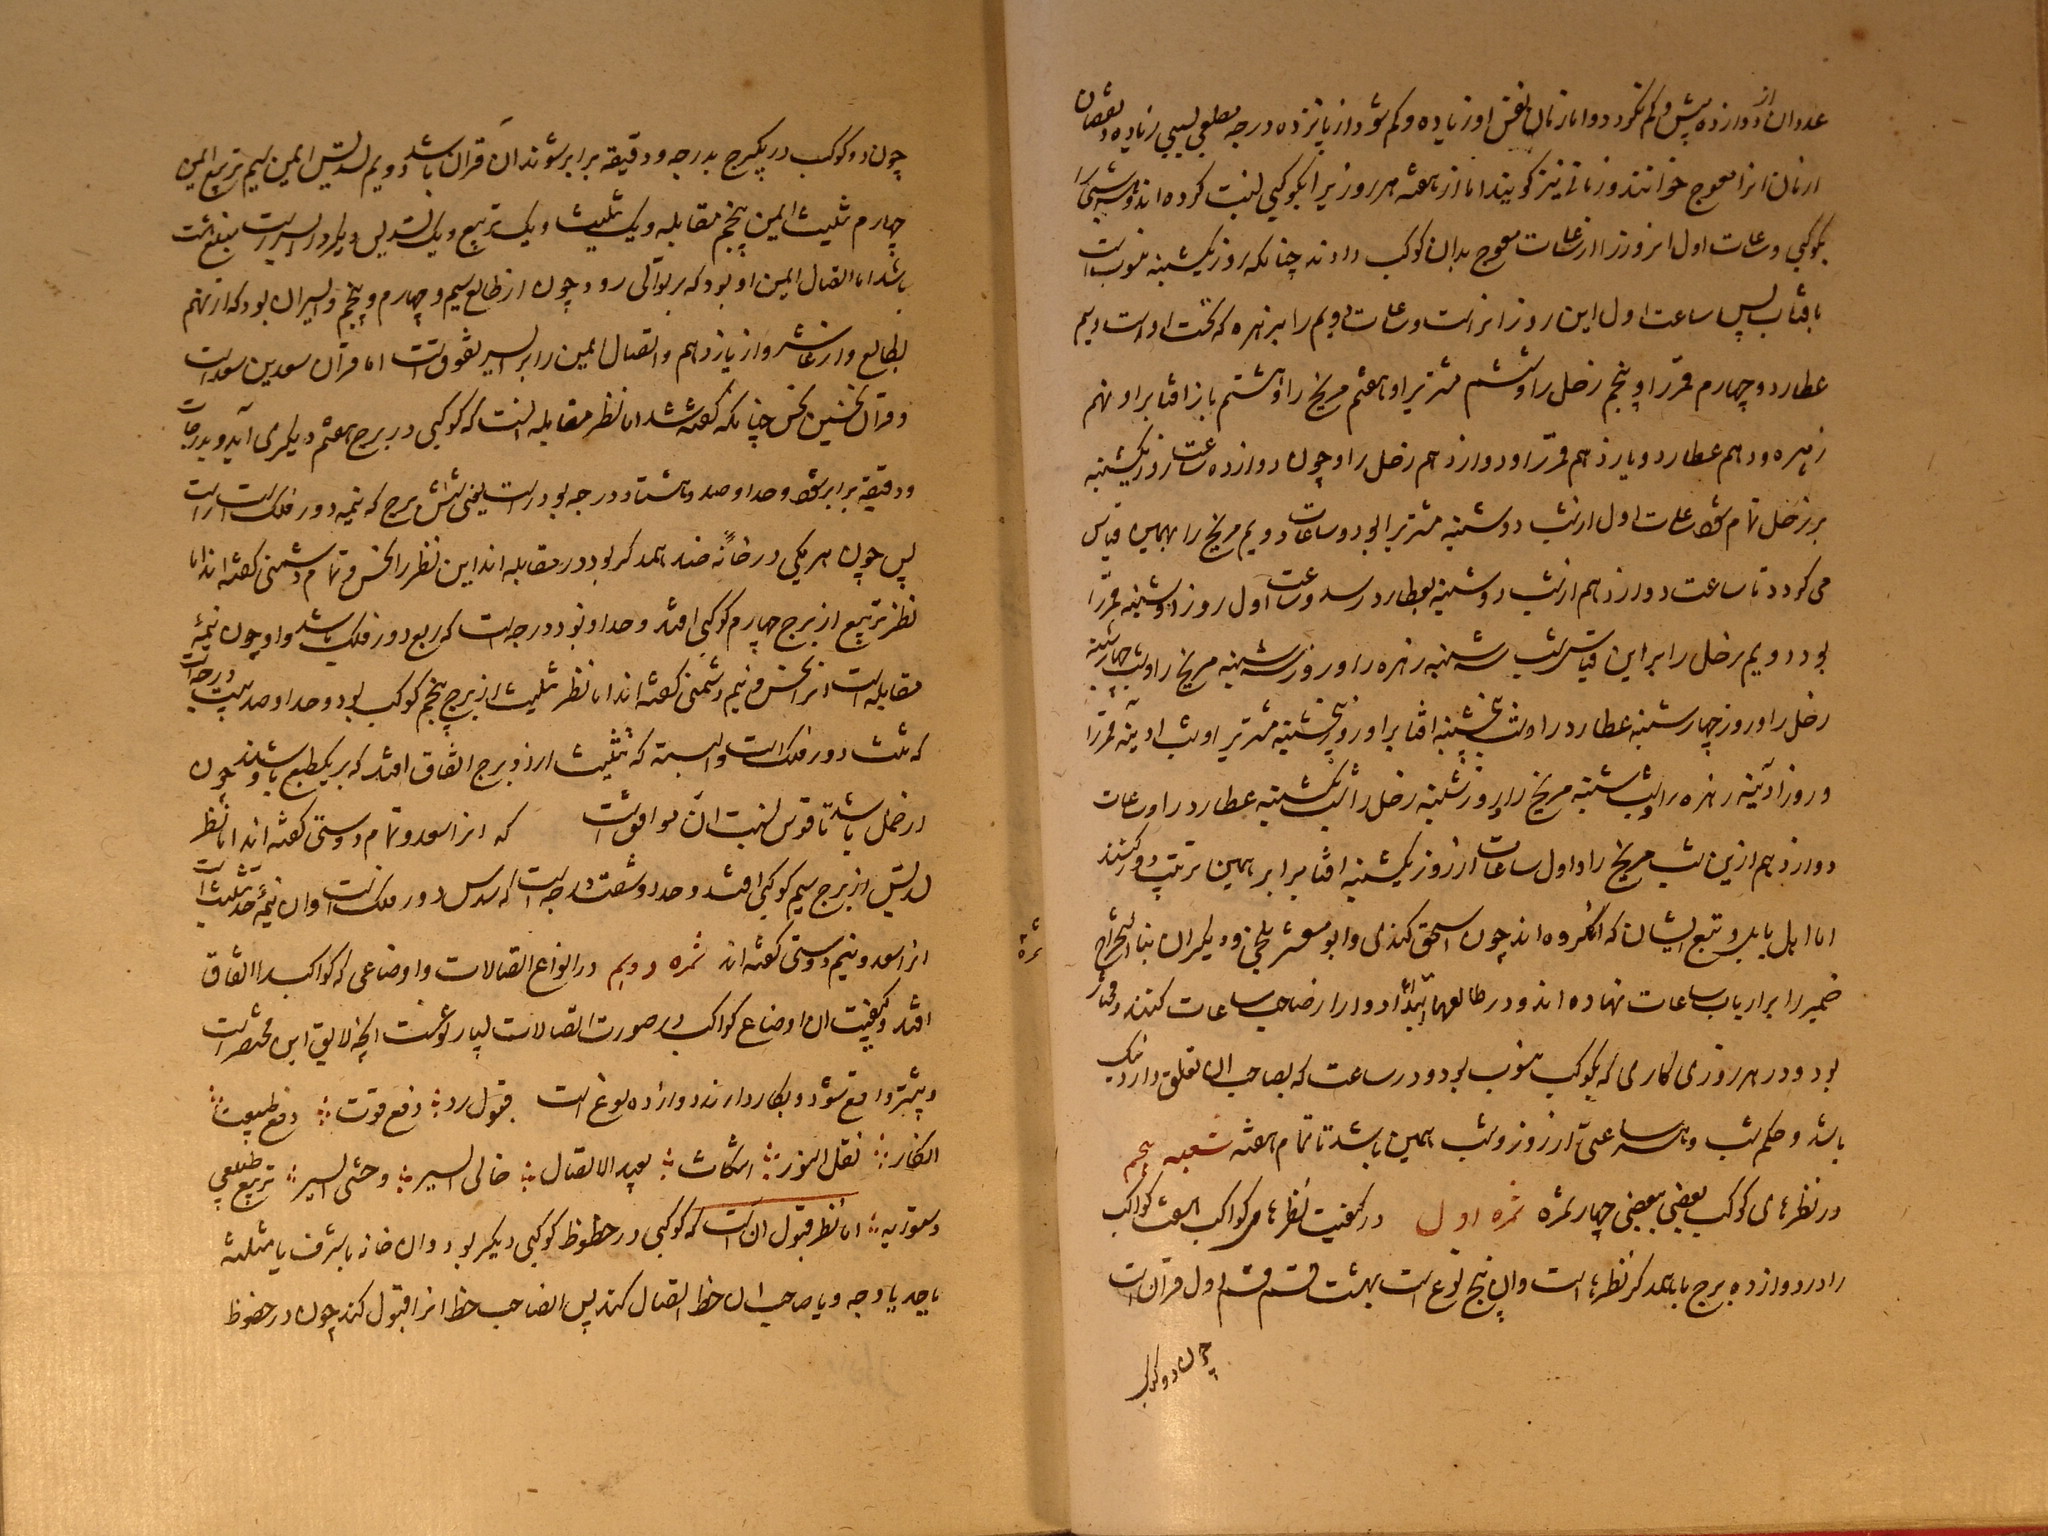 عدد ان از دوازده بیش و کم نکردد و اما زمان بنفس او زیاده و کم شود از پانزده درجه مطلعی بسببی زیاده و نقصان
ازمان انرا معوج خوانند و زمانی نیز کویند اما از هفته هر روز یرا بکوکبی نسبت کرده اند و هر شبی را
بکوکبی و ساعات اول انروز را از ساعات معوج بدان کوکب دادند چنانکه روز یکشنبه منسوبست
بافتاب پس ساعت اول این روز انراست و ساعات دویم را بزهره که تحت اوست و سیم
عطارد و چهارم قمر را و پنجم زحل را و ششم مشتریرا و هفتم مریخ را و هشتم باز افتابرا و نهم
زهره و دهم عطارد و یازدهم قمر را و دوازدهم زحل را و چون دوازده ساعت روز یکشنبه
بر زحل تمام شود ساعات اول از شب دوشنبه مشتریرا بود و ساعات دویم مریخ را بهمین قیاس
می کردد تا ساعت دوازدهم از شب دوشنبه بعطارد رسد و ساعت اول روز دوشنبه قمر را
بود دویم زحل را برین قیاس شب سه شنبه زهره را و روز سه شنبه مریخ را و شب چهارشنبه
زحل را و روز چهارشنبه عطارد را و شب پنجشنبه افتابرا و روز پنجشنبه مشتریرا و شب ادینه قمر را
و روز ادینه زهره را و شب شنبه مریخ را و روز شنبه زحل را و شب یکشنبه عطارد را و ساعات
دوازدهم ازین شب مریخ را و اول ساعات از روز یکشنبه افتابرا بر همین ترتیب دور کنند
اما اهل بابل و تبع ایشان که انکروه اند چون اسحق کندی و ابومعشر بلخی و دیکران بنا استخراج
ضمیر را بر ارباب ساعات نهاده اند و در طالعها ابتدا ادوار از صاحب ساعات کنند و مختار
بود و در هر روزی کاری که بکوکب منسوب بود و در ساعت که بصاحب ان تعلق دارد نیک
باشد و حکم شب و هر ساعتی از روز و شب همین باشد تا تمام هفته شعبه پنجم
در نظرهای کوکب بعضی ببعضی چهار ثمره ثمره اول در کیفیت نظرهای کواکب هفت کواکب
را در دوازده برج با همدکر نظرهاست و ان پنج نوع است بهشت قسم قسم اول قرانست
چون دو کوکب
ثمره
چون دو کوکب در یکبرج بدرجه و دقیقه برابر شوند ان قران باشد دویم تسدیس ایمن سیم تربیع ایمن
چهارم تثلیث ایمن پنجم مقابله و یک تثلیث و یک تربیع و یک تسدیس دیکر از ایسر است مبلغ هشت
باشد اما اتصال ایمن او بود که بر توالی رود چون از طالع بسیم و چهارم و پنجم و ایسر ان بود که از نهم
بطالع و از عاشر و از یازدهم و اتصال ایمن را بر ایسر تفوقست اما قران سعدین سعدست
و قران نحسین نحس چنانکه کفته شد اما نظر مقابله انست که کوکبی در برج هفتم دیکری آید و بدرجات
و دقیقه برابر شود و حد او صد و هشتاد درجه بودست یعنی شش برج که نیمه دور فلک است
پس چون هر یکی در خانه ضد همدکر بود در مقابله اند این نظر را نحس و تمام دشمنی کفته اند اما
نظر تربیع از برج چهارم کوکبی افتد و حد او نود درجه است که ربع دور فلک باشد و او چون نیمهٔ
مقابله است انرا نحس و نیم دشمنی کفته اند اما نظر تثلیث از برج پنجم کوکب بود و حد او صد و بیست درجه است
که ثلث دور فلک است و البته که تثلیث از دو برج اتفاق افتد که بر یکطبع باشند چون
از حمل باشد تا قوس نسبت ان موافقست که انرا سعد و تمام دوستی کفته اند اما نظر
تسدیس از برج سیم کوکبی افتد و حد او شصت درجه است که سدس دور فلک است و ان نیمهٔ حد تثلیث است
انرا سعد و نیم دوستی کفته اند ثمره دویم در انواع اتصالات و اوضاعی که کواکب را اتفاق
افتد و کیفیت ان اوضاع کواکب در صورت اتصالات بسیار نوعست انچه لایق این مختصر است
و بیشتر واقع شود و بکار دارند دوازده نوع است قبول رد دفع قوت دفع طبیعت
انکار نقل النور انتکاث بعید الاتصال خالی السیر وحشی السیر تربیع طبیعی
دستوریه اما نظر قبول ان است که کوکبی در حظوظ کوکبی دیکر بود و ان خانه یا شرف یا مثلثه
یا حد یا وجه و یا صاحب ان حظ اتصال کند پس انصاحب حظ انرا قبول کند چون در حظوظ